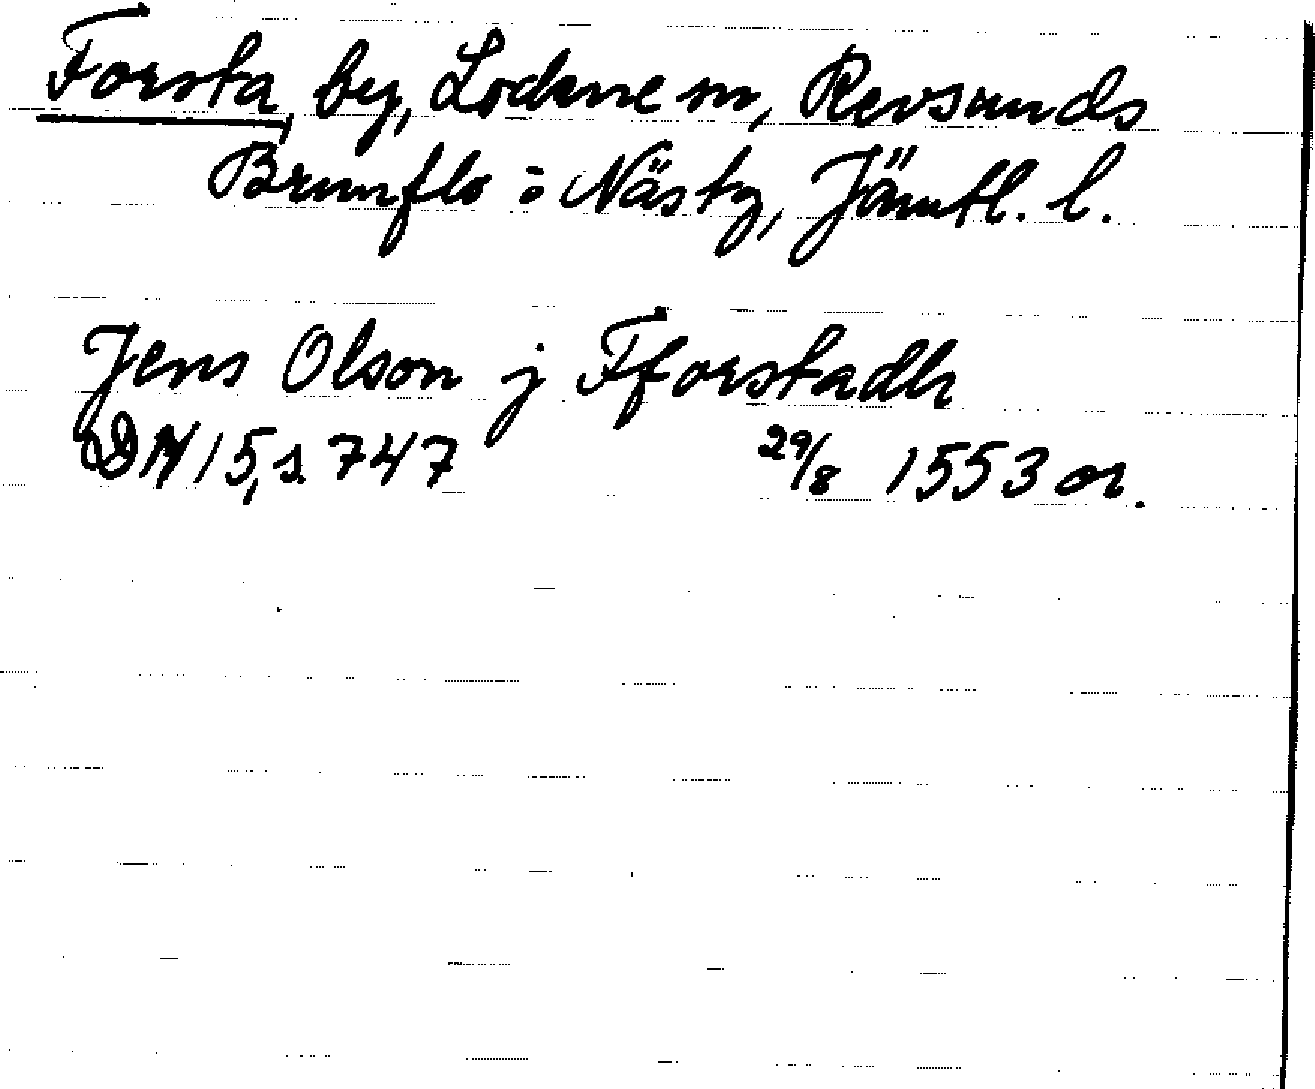 Forsta, by, Lockne sn, Revsunds
Brunflo o Näs tg, Jämtl. l.
Jens Olson j Fforstadh
DN 15, s. 747 29/8 1553 or.